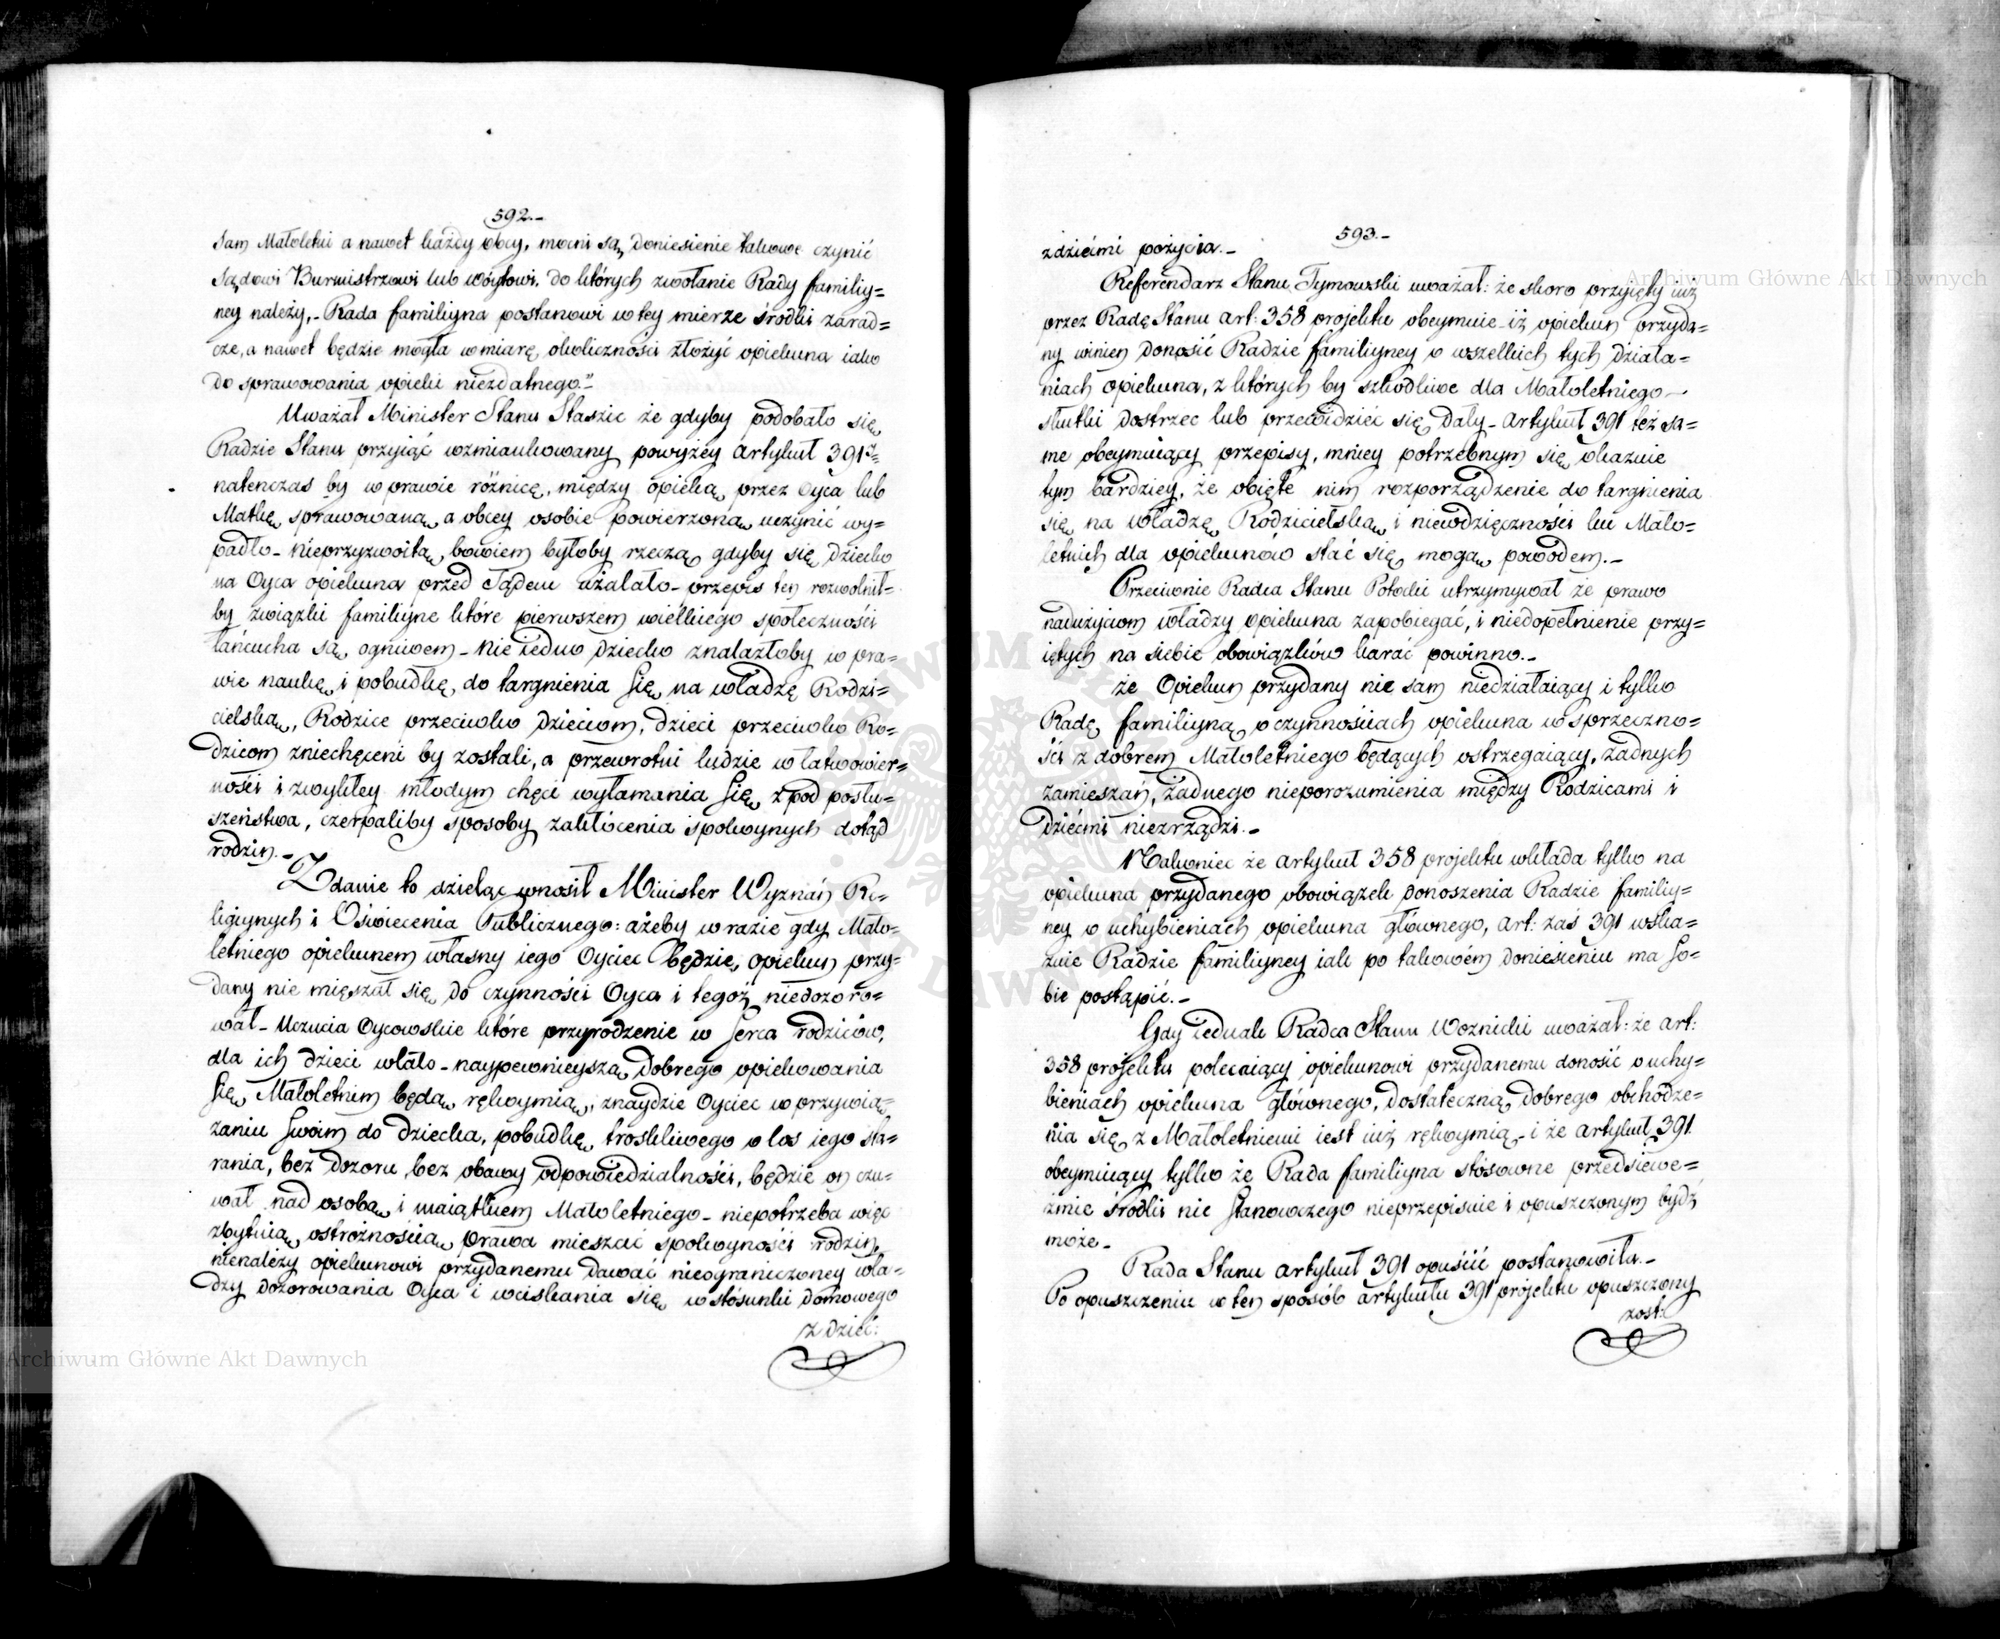 592.-
sam Małoletni a nawet każdy obcy, mocni są, doniesienie takowe czynić
Sądowi Burmistrzowi lub wóytowi, do których zwołanie Rady familiy=
ney należy,- Rada familiyna postanowi w tey mierze środki zarad=
cze, a nawet będzie mogła w miarę okoliczności złożyć opiekuna iako
do sprawowania opieki niezdatnego."
Uważał Minister Stanu Staszic że gdyby podobało się
Radzie Stanu przyiąć wzmiankowany powyżey artykuł 391
natenczas by w prawie różnicę, między opieką przez Oyca lub
Matkę sprawowaną, a obcey osobie powierzoną uczynić wy=
padło- nieprzyzwoitą, bowiem byłoby rzeczą gdyby się dziecko
na Oyca opiekuna przed Sądem użalało- przepis ten rozwolnił=
by związki familiyne które pierwszem wielkiego społeczności
łańcucha są ogniwem- nie iedno dziecko znalazłoby w pra=
wie naukę i pobudkę, do targnienia się na władzę Rodzi=
cielską, Rodzice przeciwko dzieciom, dzieci przeciwko Ro=
dzicom zniechęceni by zostali, a przewrotni ludzie w łatwowier=
ności i zwykłey młodym chęci wyłamania się z pod posłu=
szeństwa, czerpaliby sposoby zakłócenia spokoynych dotąd
rodzin.-
Zdanie to dzieląc wnosił Minister Wyznań Re=
ligiynych i Oświecenia Publicznego: ażeby w razie gdy Mało=
letniego opiekunem własny iego Oyciec będzie, opiekun przy=
dany nie mięszał się do czynności Oyca i tegóż niedozoro=
wał- Uczucia Oycowskie które przyrodzenie w serca rodziców,
dla ich dzieci wlało- naypewnieyszą dobrego opiekowania
się Małoletnim będą rękoymią, znaydzie Oyciec w przywią=
zaniu swoim do dziecka, pobudkę troskliwego o los iego sta=
rania, bez dozoru, bez obawy odpowiedzialności, będzie on czu=
wał nad osobą i maiątkiem Małoletniego- niepotrzeba więc
zbytnią ostrożnością prawa mieszać spokoyności rodzin,
nienależy opiekunowi przydanemu dawać nieograniczoney wła=
dzy dozorowania Oyca i wciskania się w stósunki domowego
z dzieć:
593.-
z dziećmi pożycia.-
Referendarz Stanu Tymowski uważał: że skoro przyięty iuż
przez Radę Stanu art: 358 projektu obeymuie- iż opiekun przyda=
ny winien donosić Radzie familiyney o wszelkich tych działa=
niach opiekuna, z których by szkodliwe dla Małoletniego-
skutki dostrzec lub przewidzieć się dały- artykuł 391 też sa=
me obeymuiący przepisy, mniey potrzebnym się okazuie
tym bardziey, że obięte nim rozporządzenie do targnienia
się na władzę Rodzicielską i niewdzięczności ku Mało=
letnich dla opiekunów stać się mogą powodem.-
Przeciwnie Radca Stanu Potocki utrzymywał że prawo
nadużyciom władzy opiekuna zapobiegać, i niedopełnienie przy=
iętych na siebie obowiązków karać powinno.-
że Opiekun przydany nie sam niedziałaiący i tylko
Radę familiyną o czynnościach opiekuna w sprzeczno=
ści z dobrem Małoletniego będących ostrzegaiący, żadnych
zamieszań, żadnego nieporozumienia między Rodzicami i
dziećmi niezrządzi.-
Nakoniec że artykuł 358 projektu wkłada tylko na
opiekuna przydanego obowiązek donoszenia Radzie familiy=
ney o uchybieniach opiekuna głównego, art: zaś 391 wska=
zuie Radzie familiyney iak po takowém doniesieniu ma so=
bie postąpić.-
Gdy iednak Radca Stanu Woznicki uważał: że art:
358 projektu polecaiący opiekunowi przydanemu donosić o uchy=
bieniach opiekuna głównego, dostateczną dobrego obchodze=
nia się z Małoletniemi iest iuż rękoymią- i że artykuł 391
obeymuiący tylko że Rada familiyna stósowne przedsięwe=
źmie środki nic stanowczego nieprzepisuie i opuszczonym bydź
może-
Rada Stanu artykuł 391 opuścić postanowiła.-
Po opuszczeniu w ten sposób artykułu 391 projektu opuszczony
zosta